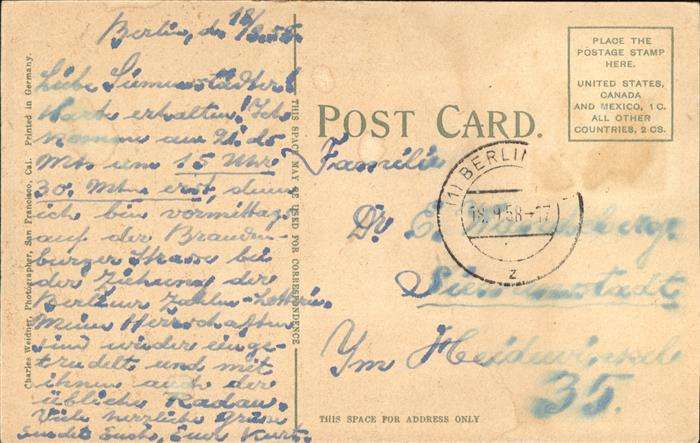 Berlin, d. 18/9.58.
Liebe Siemensstädter!
Karte erhalten! Ich
komme am 21. ds
Mts um 15 Uhr
30. Mtn. erst, denn
ich bin vormittags
auf der Branden-
burger Strasse bei
der Ziehung der
Berliner Zahlen-Lotterie.
Meine Herrschaften
sind wieder einge-
trudelt und mit
ihnen auch der
übliche Radau.
Viele herzliche Grüsse
sendet Euch, Euer Kurt.
Charles Weidner, Photographer, San Francisco, Cal. Printed in Germany.
THIS SPACE MAY BE USED FOR CORRESPONDENCE
POST CARD.
PLACE THE
POSTAGE STAMP
HERE.
UNITED STATES,
CANADA
AND MEXICO, 1 C.
ALL OTHER
COUNTRIES, 2 CS.
(1) BERLIN
18.9.58-17
z
Familie
Dr. E.
Siemensstadt
Im Heidewinkel
35.
THIS SPACE FOR ADDRESS ONLY